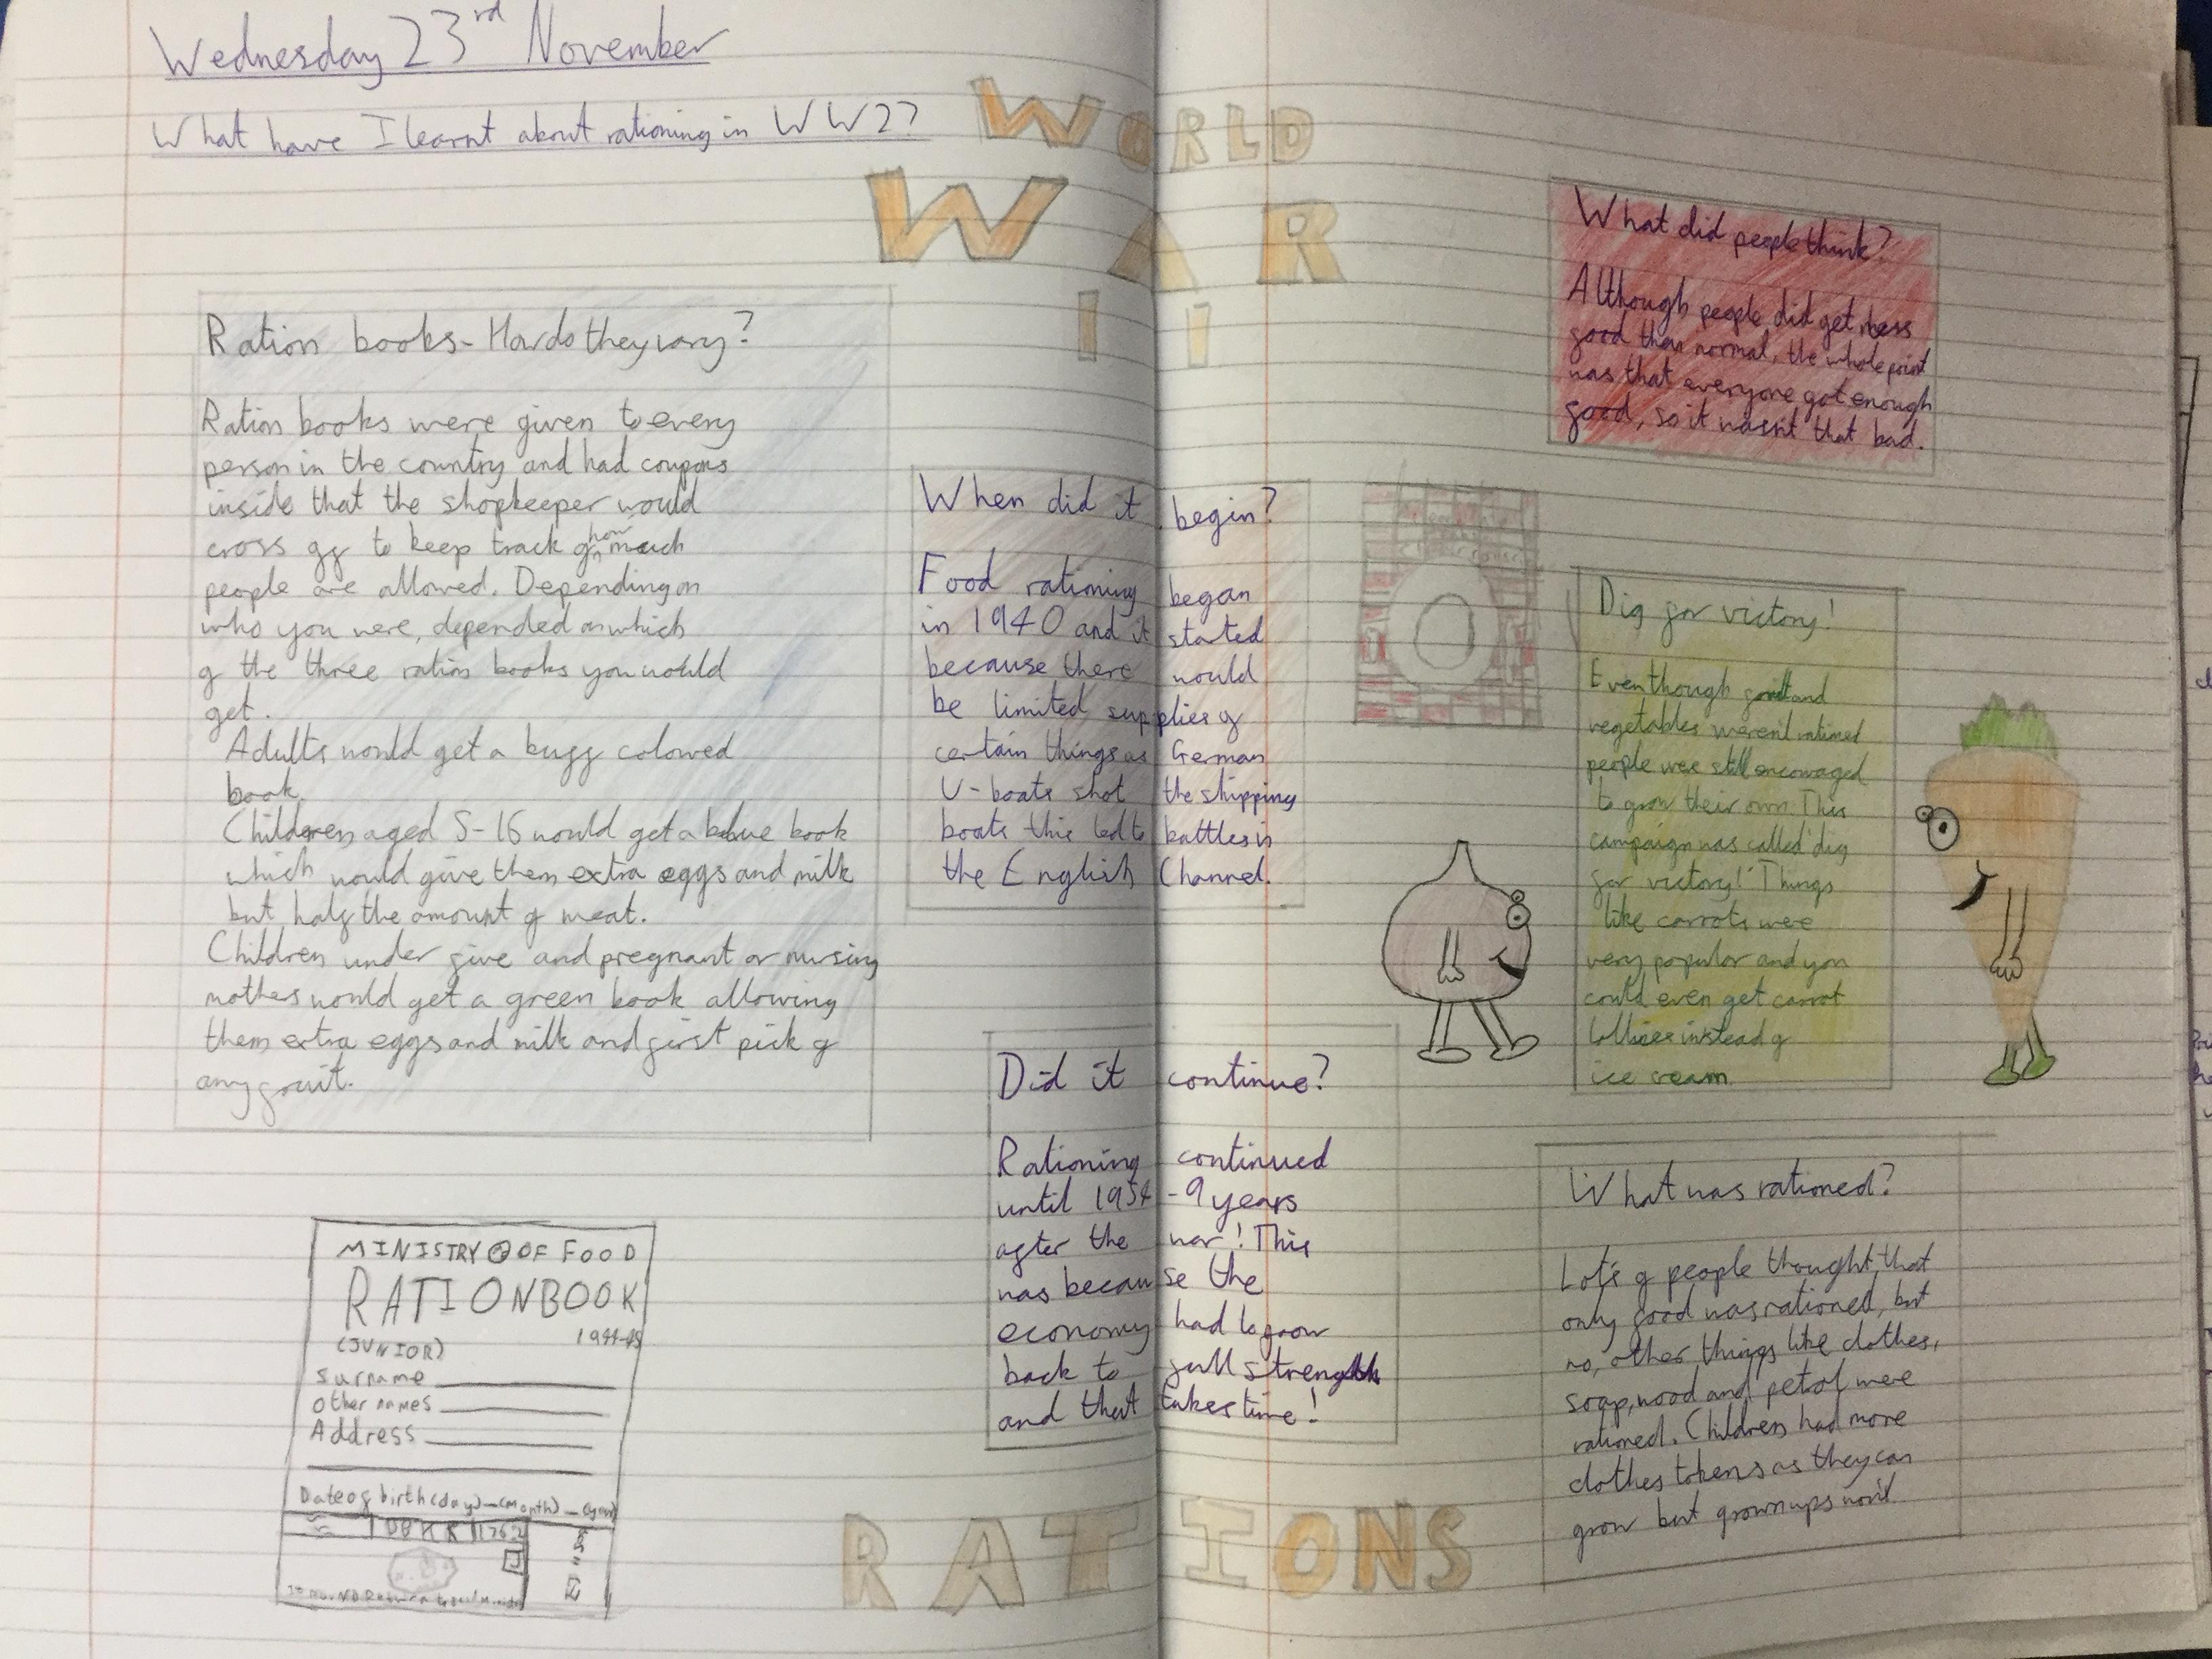 Wednesday 23rd November
What have I learnt about rationing in WW2?
WORLD
WAR
II
Ration books - How do they vary?
Ration books were given to every
person in the country and had coupons
inside that the shopkeeper would
cross off to keep track of how much
people are allowed. Depending on
who you were, depended on which
of the three ration books you would
get.
Adults would get a buff coloured
book.
Children aged 5-16 would get a blue book
which would give them extra eggs and milk
but half the amount of meat.
Children under five and pregnant or nursing
mothes would get a green book allowing
them extra eggs and milk and first pick of
any fruit.
MINISTRY OF FOOD
RATIONBOOK
1944-45
(JUNIOR)
Surname
Other names
Address
Date of birth (day) - (Month) - (year)
When did it begin?
Food rationing began
in 1940 and it started
because there would
be limited supplies of
certain things as German
U-boats shot the shipping
boats this led to battles in
the English Channel.
Did it continue?
Rationing continued
until 1954 - 9 years
after the war! This
was because the
economy had to grow
back to full strength
and that takes time!
RATIONS
What did people think?
Although people did get less
food than normal, the whole point
was that everyone got enough
food, so it wasn't that bad.
Dig for victory!
Even though fruit and
vegetables weren't rationed
people were still encouraged
to grow their own. This
campaign was called 'dig
for victory!' Things
like carrots were
very popular and you
could even get carrot
lollies instead of
ice cream.
What was rationed?
Lot's of people thought that
only food was rationed, but
no, other things like clothes,
soap, wood and petrol were
rationed. Children had more
clothes tokens as they can
grow but grownups won't